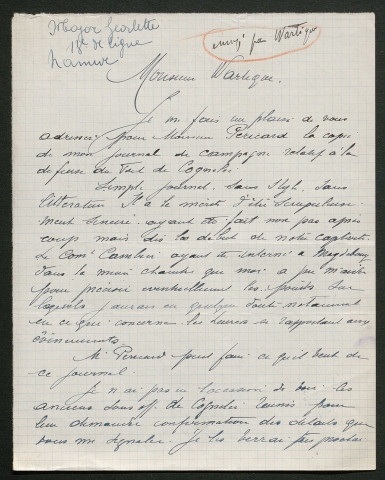 Major Georlette
18e de ligne
Namur
envoi par Wartique
Monsieur Wartique.
Je me fais un plaisir de vous
adresser pour Monsieur Péricard la copie
de mon journal de campagne relatif à la
défense du fort de Cognelée.
Simple journal. Sans style, sans
littérature Il a le mérite d'être scrupuleuse-
ment sincère ayant été fait non pas après
coup mais dès le début de notre captivité.
Le Comt Cambier ayant été interné à Magdebourg
dans la même chambre que moi a pu m'aider
pour préciser éventuellement les points sur
lesquels j'aurais eu quelque doute notamment
en ce qui concerne les heures se rapportant aux
évènements
M. Péricard peut faire ce qu'il veut de
ce journal.
Je n'ai pas eu l'occasion de voir les
anciens sous off. de Cognelée réunis pour
leur demander confirmation des détails que
vous me signalez. Je les verrai très prochai